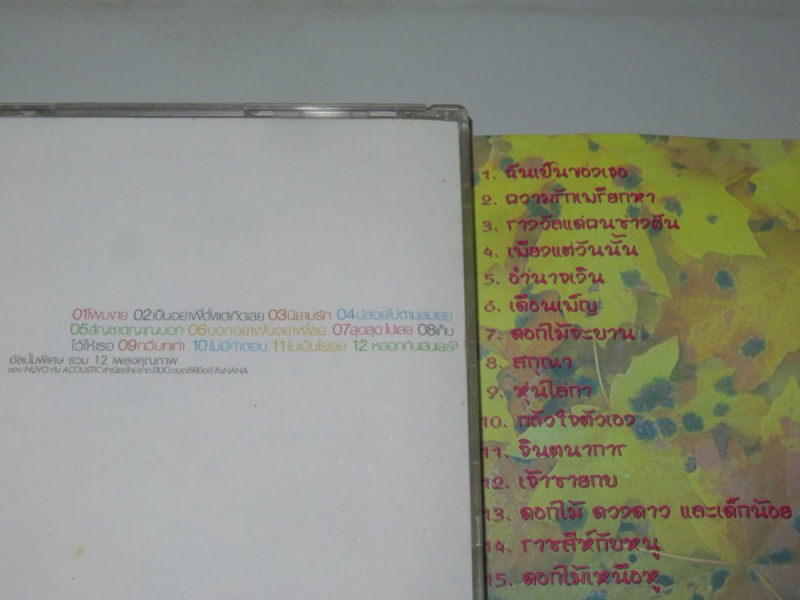 01โฆษขาย 02เป็นอย่างนี้ตั้งแต่เกิดเลย 03นิยามรัก 04ปล่อยไปตามลมเลย
05สัญชาตญาณบอก 06บอกอย่างงั้นอย่างงี้เลย 07สุดสุดไปเลย 08เก็บ
ไว้ให้เธอ 09ควันทเก่า 10ไม่มีคำตอบ 11ไม่เป็นไรเลย 12 หลอกกันเล่นเลย
อัลบั้มพิเศษ รวม 12 เพลงคุณภาพ
ของ NUVO กับ ACOUSTIC สำเนียงใหม่จาก DUO ดนตรีฝีมือดี P2NANA
1. ฉันเป็นของเธอ
2. ความรักเพรียกหา
3. รางวัลแด่คนช่างฝัน
4. เพียงแต่วันนั้น
5. อำนาจเงิน
6. เดือนเพ็ญ
7. ดอกไม้จะบาน
8. สกุณา
9. หุ่นไล่กา
10. กลัวใจตัวเอง
11. จินตนาการ
12. เจ้าชายกบ
13. ดอกไม้ ดวงดาว และเด็กน้อย
14. ราชสีห์กับหนู
15. ดอกไม้เหนือหู